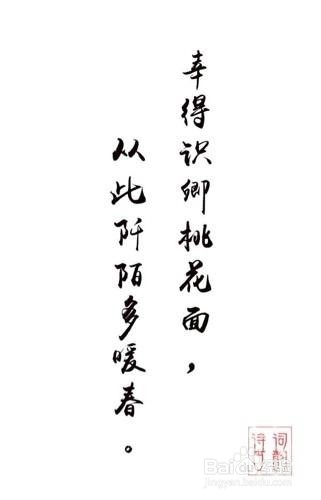 幸得识卿桃花面，
从此阡陌多暖春。
Baidu经验
jingyan.baidu.com